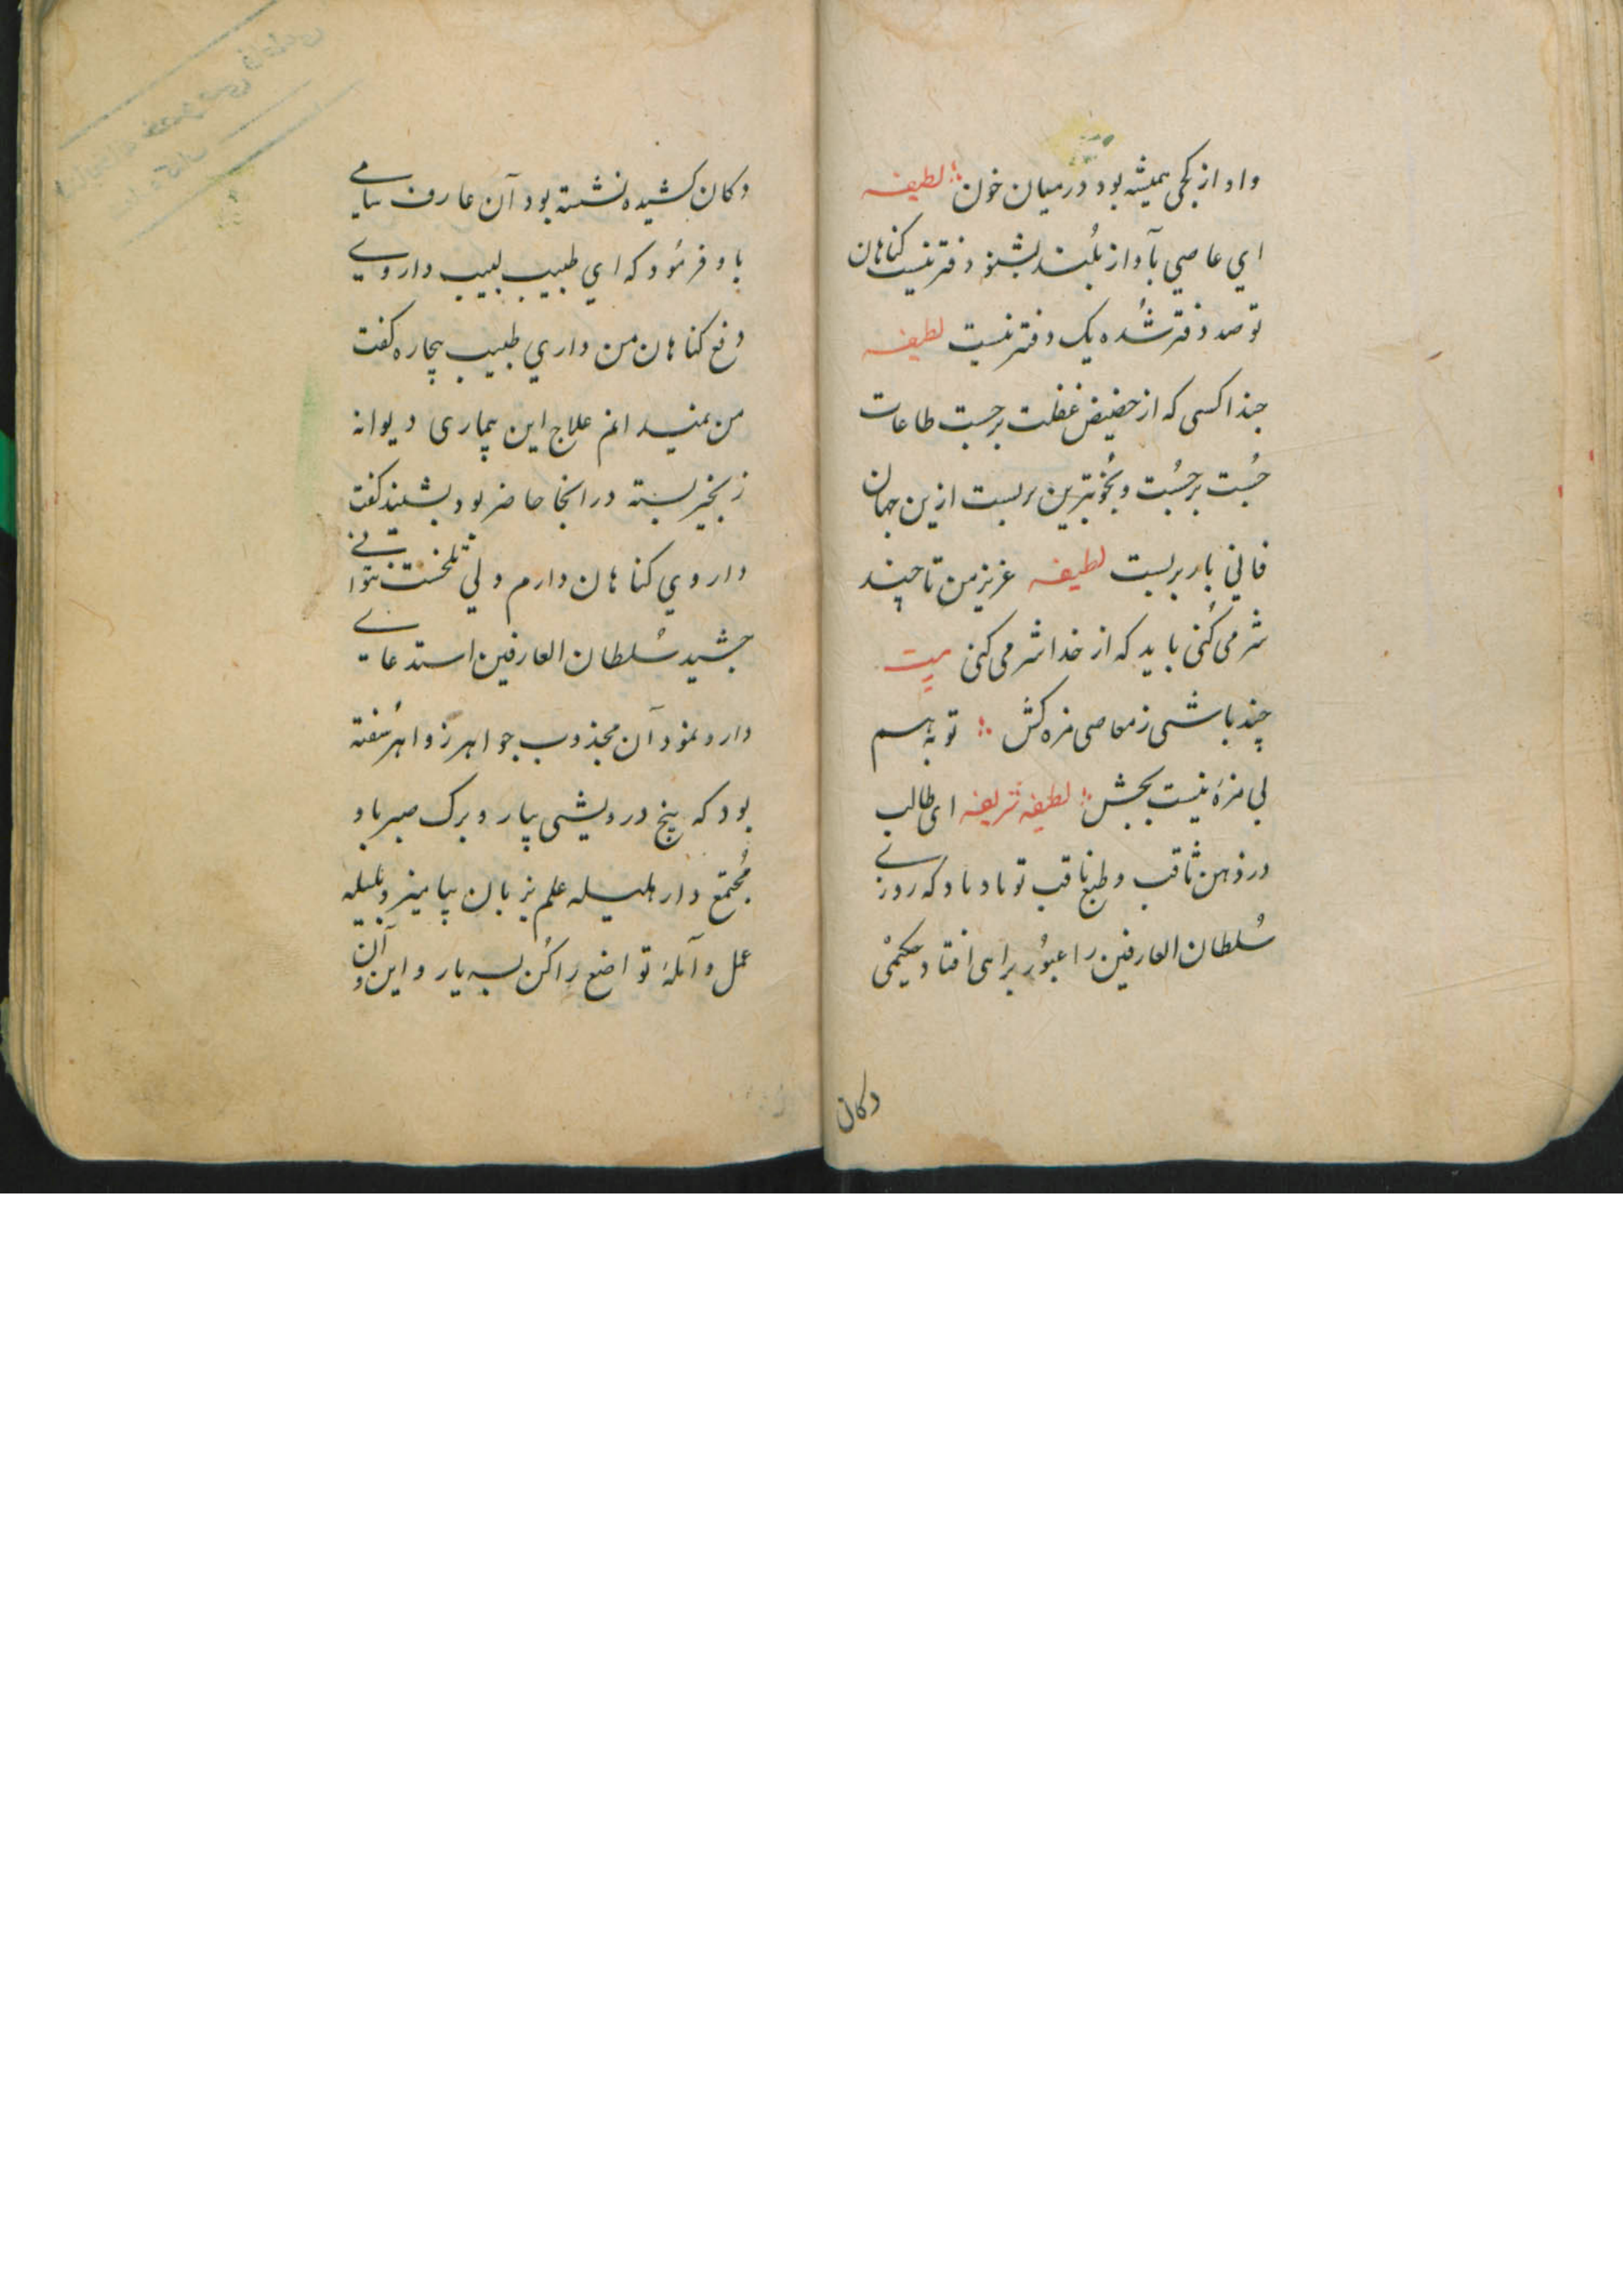 واو از کجی همیشه بود در میان خون ؛ لطیفه
ای عاصی بآواز بلُند بشنو دفتر نیست کناهان
تو صد دفتر شُده یک دفتر نیست لطیفه
حبذا کسی که از حضیض غفلت برجست طاعات
جُست برجُست و بخوبترین بربست ازین جهان
فانی بار بربست لطیفه عزیز من تا چند
شر می کُنی باید که از خدا شرمی کنی بیت
چند باشی ز معاصی مزه کش ؛ توبه هم
بی مزهٔ نیست بچش ؛ لطیفه شریفه ای طالب
در ذهن ثاقب و طبع ناقب تو باد باد که روزنی
سُلطان العارفین را عبوُر براهی افتاد حکیمیْ
دکان
دکان کشیده نشسته بود آن عارف نیامی
باو فرمُود که ای طبیب لبیب دارویی
دفع کناهان من داری طبیب بیچاره کفت
من نمیدانم علاج این بیماری دیوانه
زنجیر بسته در انجا حاضر بود بشنید کفت
داروی کناهان دارم ولی تلخست نتوانی
چشید سُلطان العارفین استدعای
دارو نمود آن مجذوب جواهر زواهر سُفته
بود که بیخ درویشی بیار و برک صبر باو
مُجتمع دار هلیله علم بزبان بیامیز و بلیله
عمل و آملهٔ تواضع را کُن بسیار و این و آن